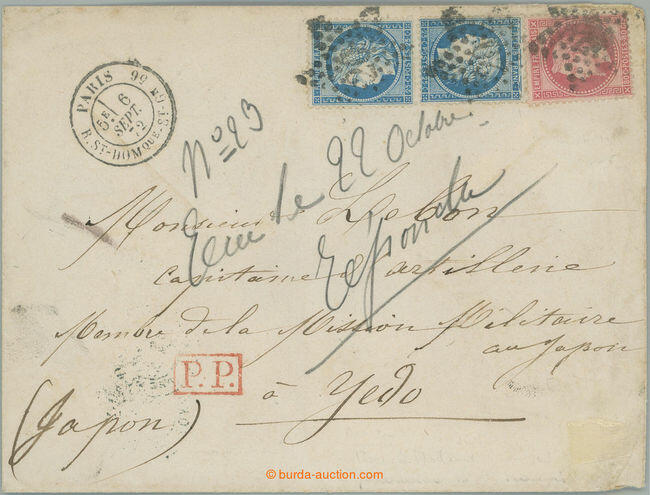 PARIS
R. ST-DOMQUE-ST-GN 56
5E/ 6
SEPT.
72
EMPIRE FRANC
No 23
Reçu le 22 Octobre
Répondu
Monsieur Lebon
Capitaine d'artillerie
Membre de la Mission Militaire
au Japon
P.P.
à Yedo
(Japon)
© burda-auction.com